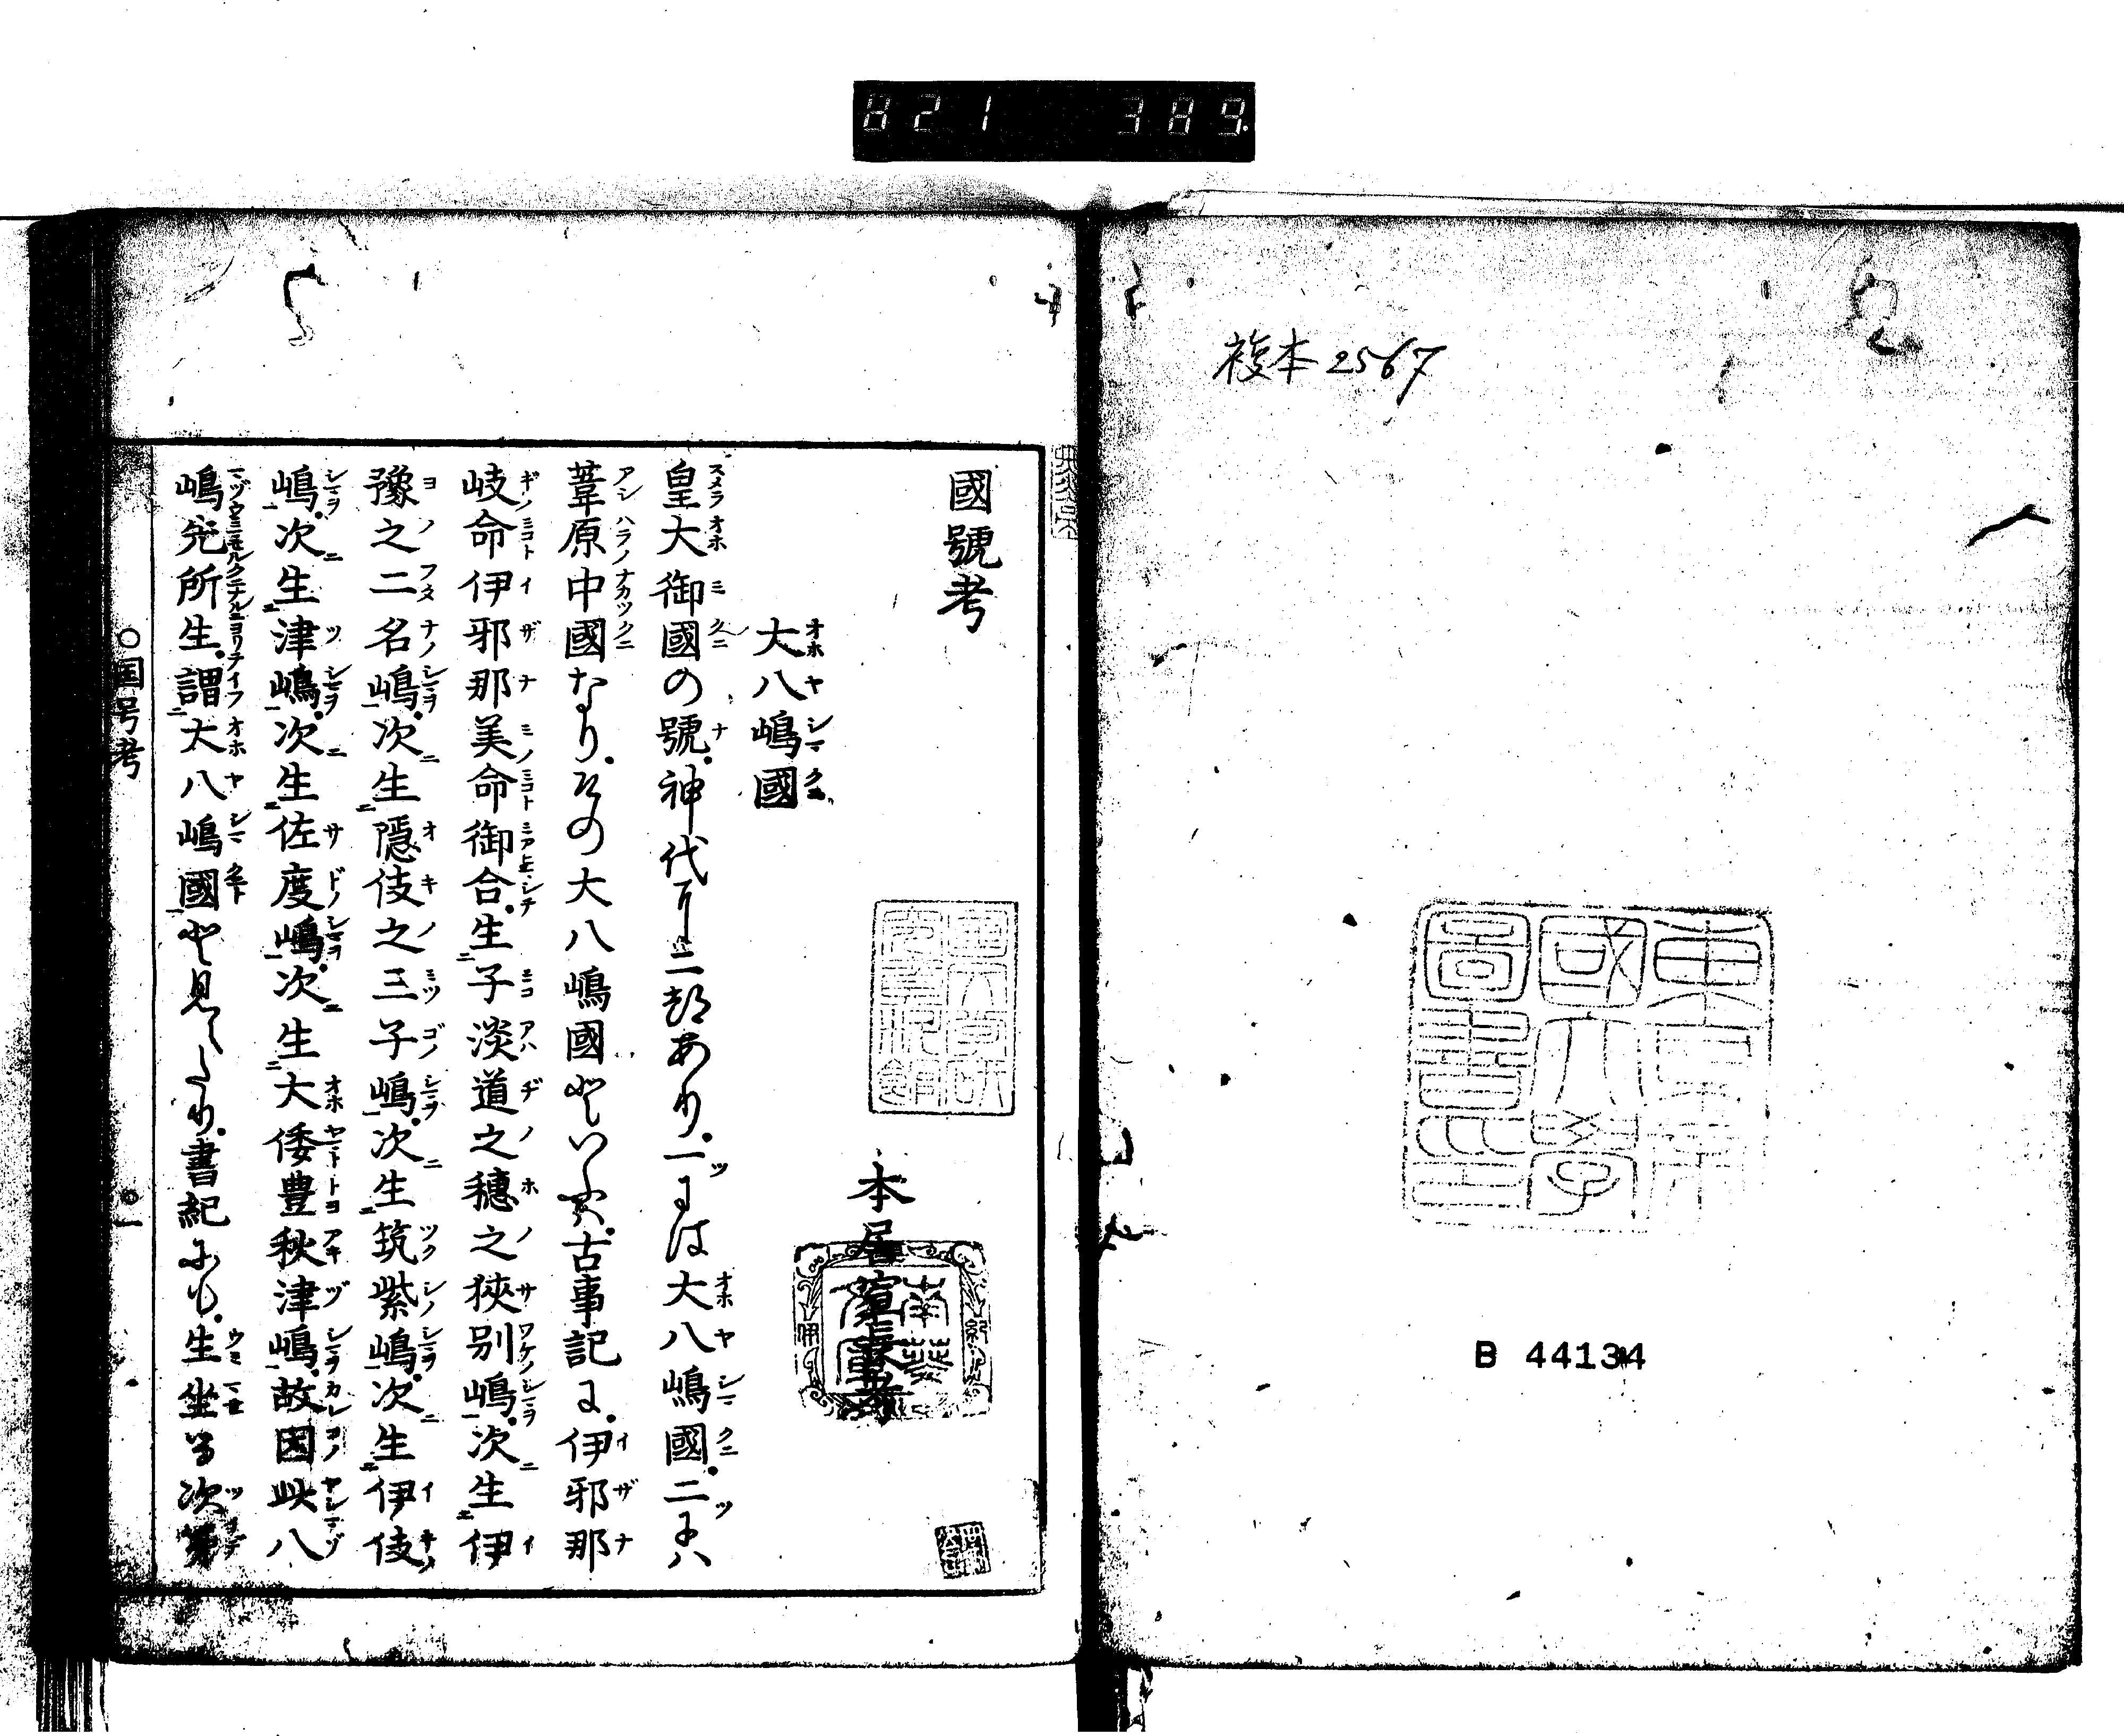 821 389.
複本2567
東京帝
國大學
圖書印
B 44134
國號考
本居宣長考
大八嶋國
皇大御國の號。神代に二ツあり。一ツには大八嶋國。二ツには
葦原中國なり。その大八嶋國といへるは。古事記に。伊邪那
岐命伊邪那美命御合。生子淡道之穗之狹別嶋。次生伊
豫之二名嶋。次生隱伎之三子嶋。次生筑紫嶋。次生伊伎
嶋。次生津嶋。次生佐度嶋。次生大倭豊秋津嶋。故因此八
嶋先所生。謂大八嶋國と見えたり。書紀にも。生坐る次第
○国号考
○一